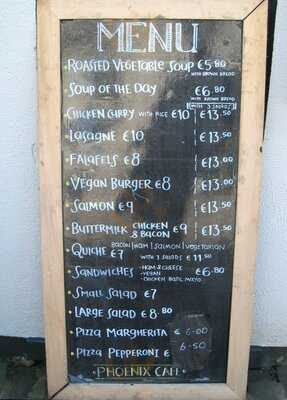 MENU
• ROASTED VEGETABLE SOUP €5.80
WITH BROWN BREAD
SOUP OF THE DAY €6.80
WITH BROWN BREAD
WITH 3 SALADS
• CHICKEN CURRY WITH RICE €10 €13.50
• LASAGNE €10 €13.50
• FALAFELS €8 €13.00
• VEGAN BURGER €8 €13.00
• SALMON €9 €13.50
• BUTTERMILK CHICKEN & BACON €9 €13.50
• QUICHE BACON|HAM|SALMON|VEGETARIAN
€7 WITH 3 SALADS €11.50
• SANDWICHES - HAM & CHEESE €6.80
- VEGAN
- CHICKEN BASIL MAYO
• SMALL SALAD €7
• LARGE SALAD €8.80
• PIZZA MARGHERITA € 6.00
• PIZZA PEPPERONI € 6.50
• PHOENIX CAFE •